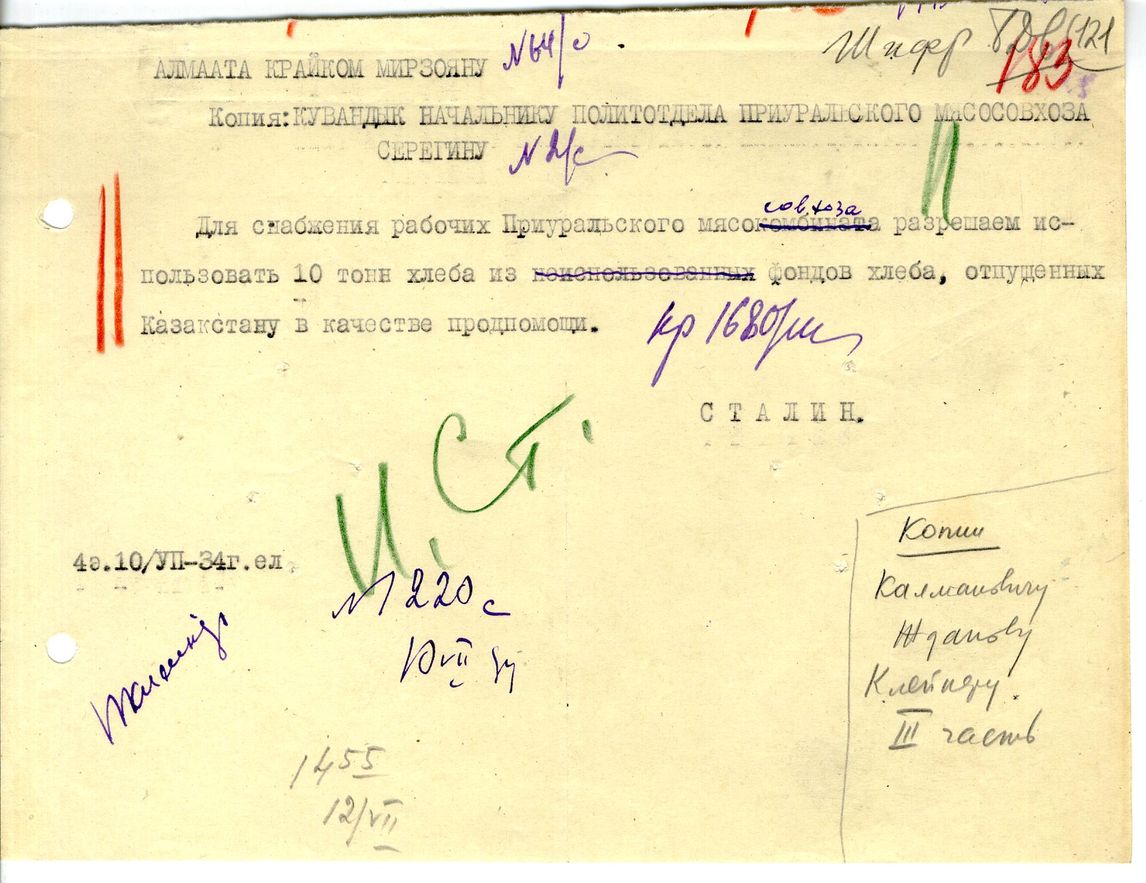 Шифр
183
121
АЛМААТА КРАЙКОМ МИРЗОЯНУ №64/с
Копия: КУВАНДЫК НАЧАЛЬНИКУ ПОЛИТОТДЕЛА ПРИУРАЛЬСКОГО МЯСОСОВХОЗА
СЕРЕГИНУ №2/с
совхоза
Для снабжения рабочих Приуральского мясокомбината разрешаем ис-
пользовать 10 тонн хлеба из неиспользованных фондов хлеба, отпущенных
Казакстану в качестве продпомощи.
СТАЛИН.
И. Ст.
4э.10/УП-34г.ел
№220с
Копии
Калмановичу
Жданову
Клейнеру.
III часть
1455
12/VII